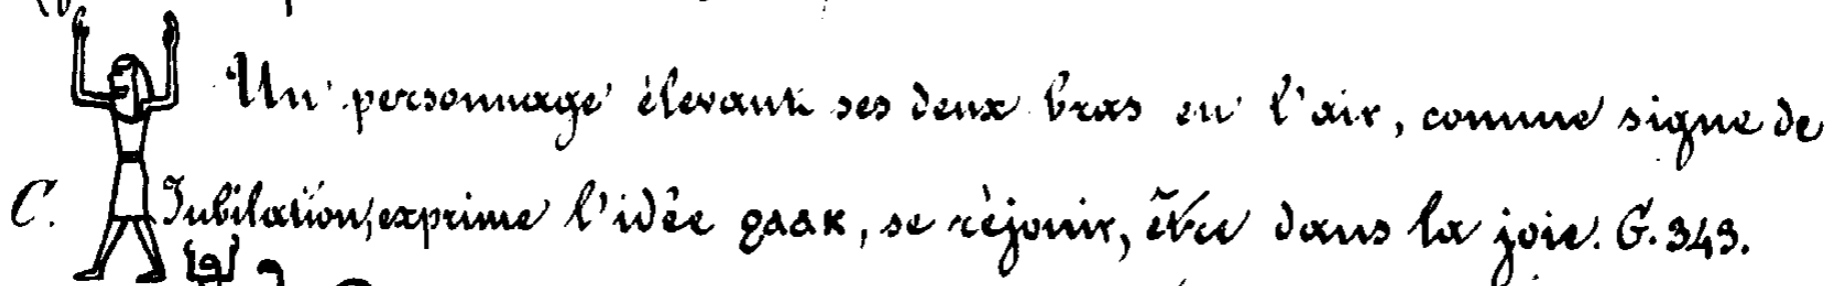 Un personnage élevant ses deux bras en l'air, comme signe de
C. Jubilation, exprime l'idée ϩⲁⲁⲕ, se réjouir, être dans la joie. G. 343.